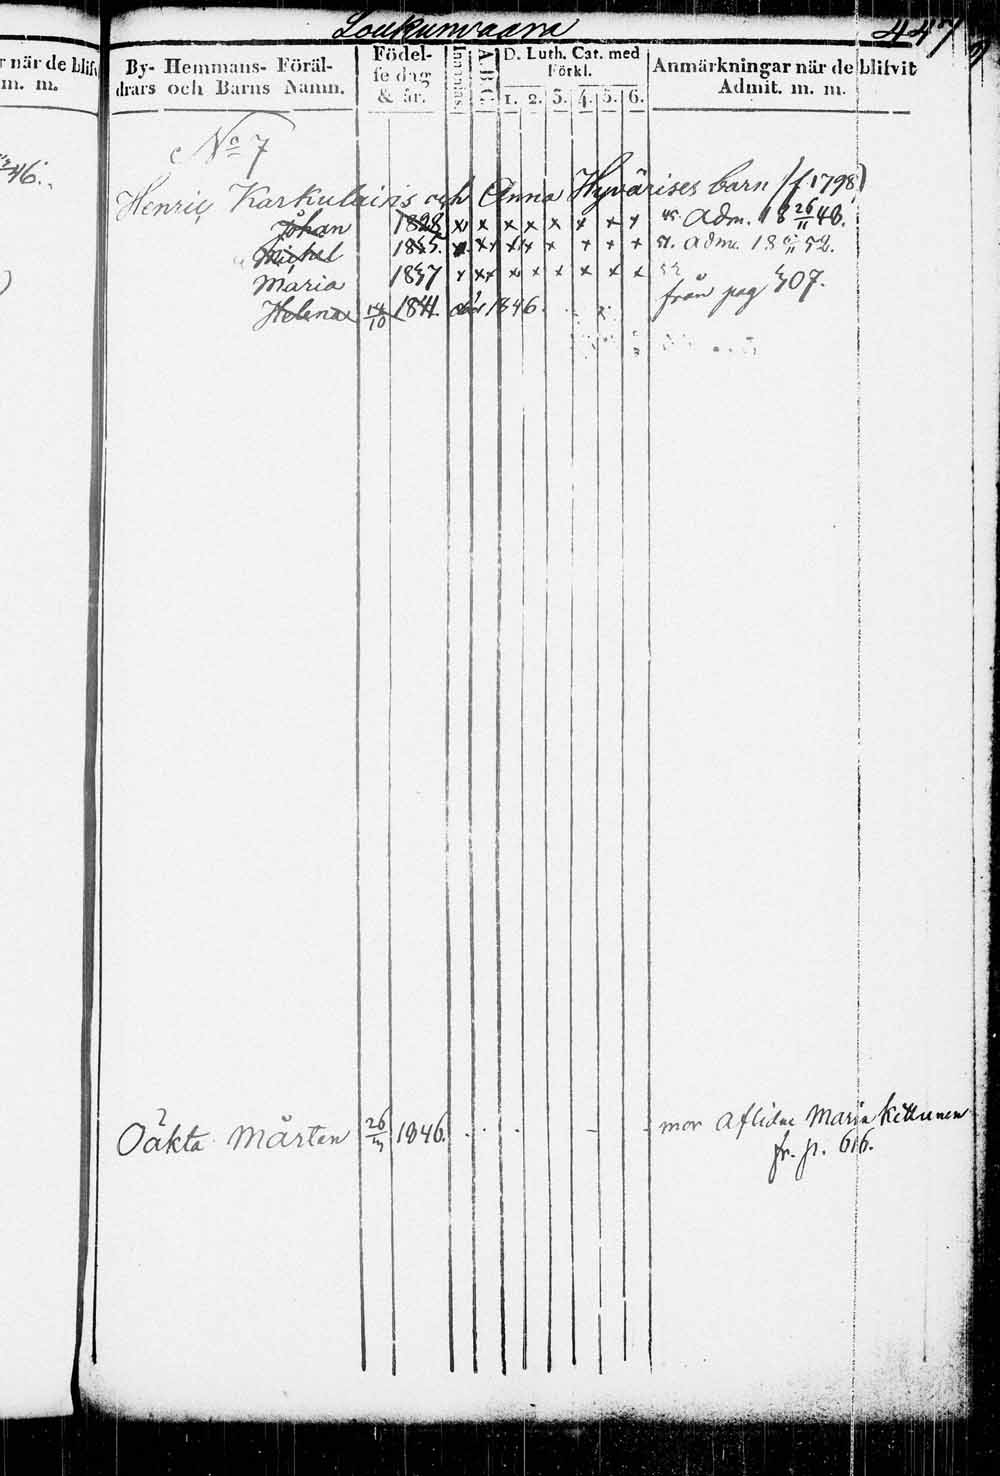 Loukunvaara 447
r när de blifv
m. m.
By- Hemmans- Föräl-
drars och Barns Namn.
Födel-
se dag
& år.
Innanläs.
A B C
D. Luth. Cat. med
Förkl.
1. 2. 3. 4. 5. 6.
Anmärkningar när de blifvit
Admit. m. m.
No 7
46.
Henric Karkulains och Anna Hyvärises barn (f. 1798)
Johan 1828 x x x x x x x x x 45. Adm. 18 26/11 48.
Michel x x x x x x x 51. adm. 18 52.
Maria 1837 x xx x x x x x x 52
från pag 307.
Helena 14/10 1841. 1846.
Oäkta Mårten 26/3 1846. mor Aflidne Maria Kettunen
fr. p. 616.